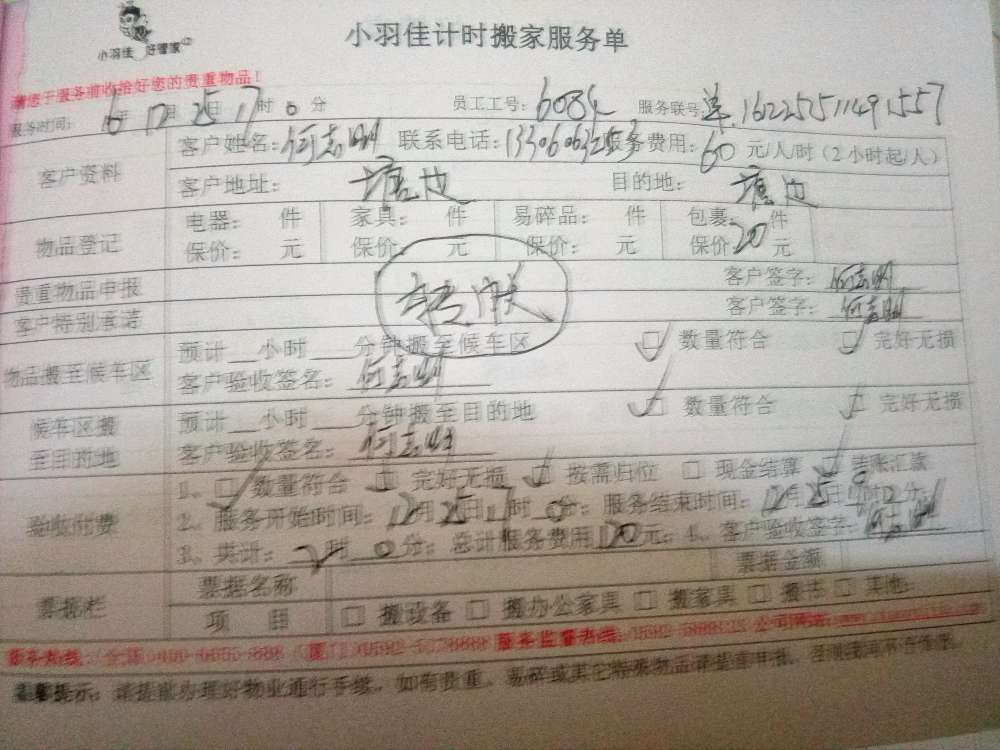 小羽佳 好管家
小羽佳计时搬家服务单
请您于服务前收拾好您的贵重物品！
服务时间： 16年 12月 25日 17时 0分 员工工号： 服务联号：
客户资料
客户姓名：何志明 联系电话： 服务费用：60元/人/时（2小时起/人）
客户地址：塘边 目的地：塘边
物品登记
电器： 件 家具： 件 易碎品： 件 包裹： 件
保价： 元 保价： 元 保价： 元 保价：20元
贵重物品申报 客户签字：何志明
客户特别承诺 客户签字：何志明
转账
物品搬至候车区
预计__小时__分钟搬至候车区 □ 数量符合 □ 完好无损
客户验收签名：何志明
候车区搬至目的地
预计__小时__分钟搬至目的地 □ 数量符合 □ 完好无损
客户验收签名：何志明
验收付费
1、□ 数量符合 □ 完好无损 □ 按需归位 □ 现金结算 □ 转账汇款
2、服务开始时间：12月25日17时0分；服务结束时间：12月25日
3、共计：2时0分；总计服务费用120元；4、客户验收签字：何志明
票据栏
票据名称 票据金额
项 目 □ 搬设备 □ 搬办公家具 □ 搬家具 □ 搬书 □ 其他：
服务热线： 服务监督热线： 公司网站：
温馨提示：请提前办理好物业通行手续。如有贵重、易碎或其它特殊物品请提前申报，